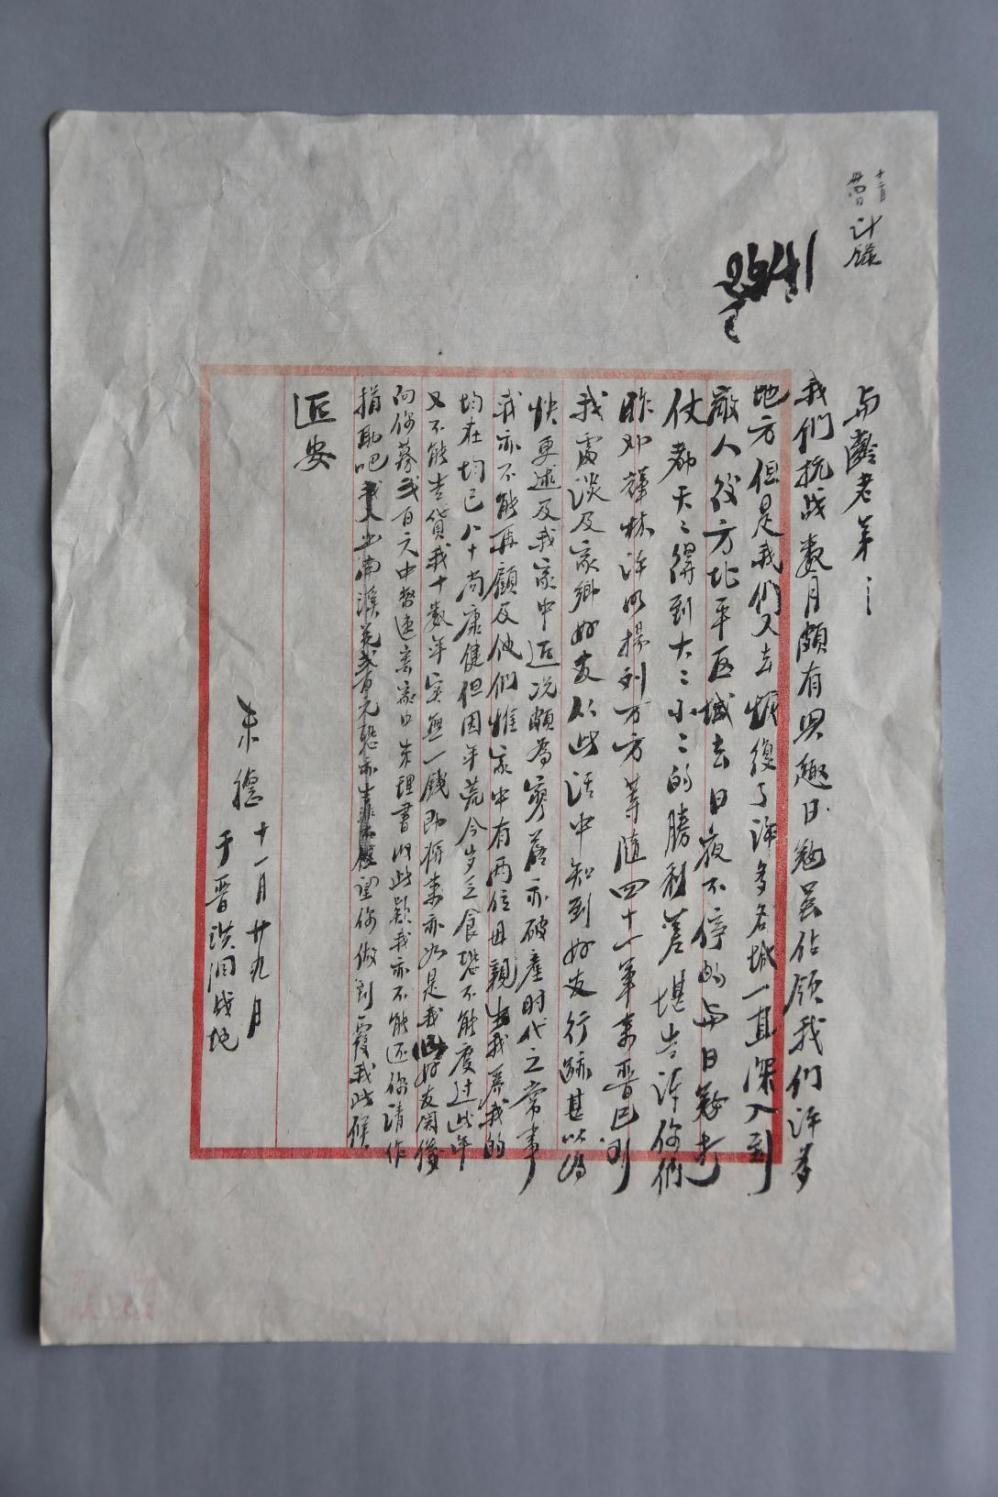 与龄老弟：
我们抗战数月颇有兴趣日寇虽佔领我们许多
地方但是我们又去恢复了许多名城一直深入到
敌人后方北平区域去日夜不停的与日寇打
仗都天天得到大大小小的胜利差堪告许你们
昨邓辉林许明扬刘万方等随四十一军来晋已到
我处谈及家乡好友从此话中知到好友行迹甚以为
快更述及我家中近况颇为寥落亦破产时代之常事
我亦不能再顾及他们惟家中有两位母親生我养我的
均在均已八十尚康健但因年荒今岁乏食恐不能度过此年
又不能告贷我十数年实无一钱即将来亦如是我以好友関係
向你募弍百元中币速寄家中朱理書收此款我亦不能还你请作
捐助吧望你做到覆我此候
近安
朱德
十一月廿九月
于晋洪洞战地